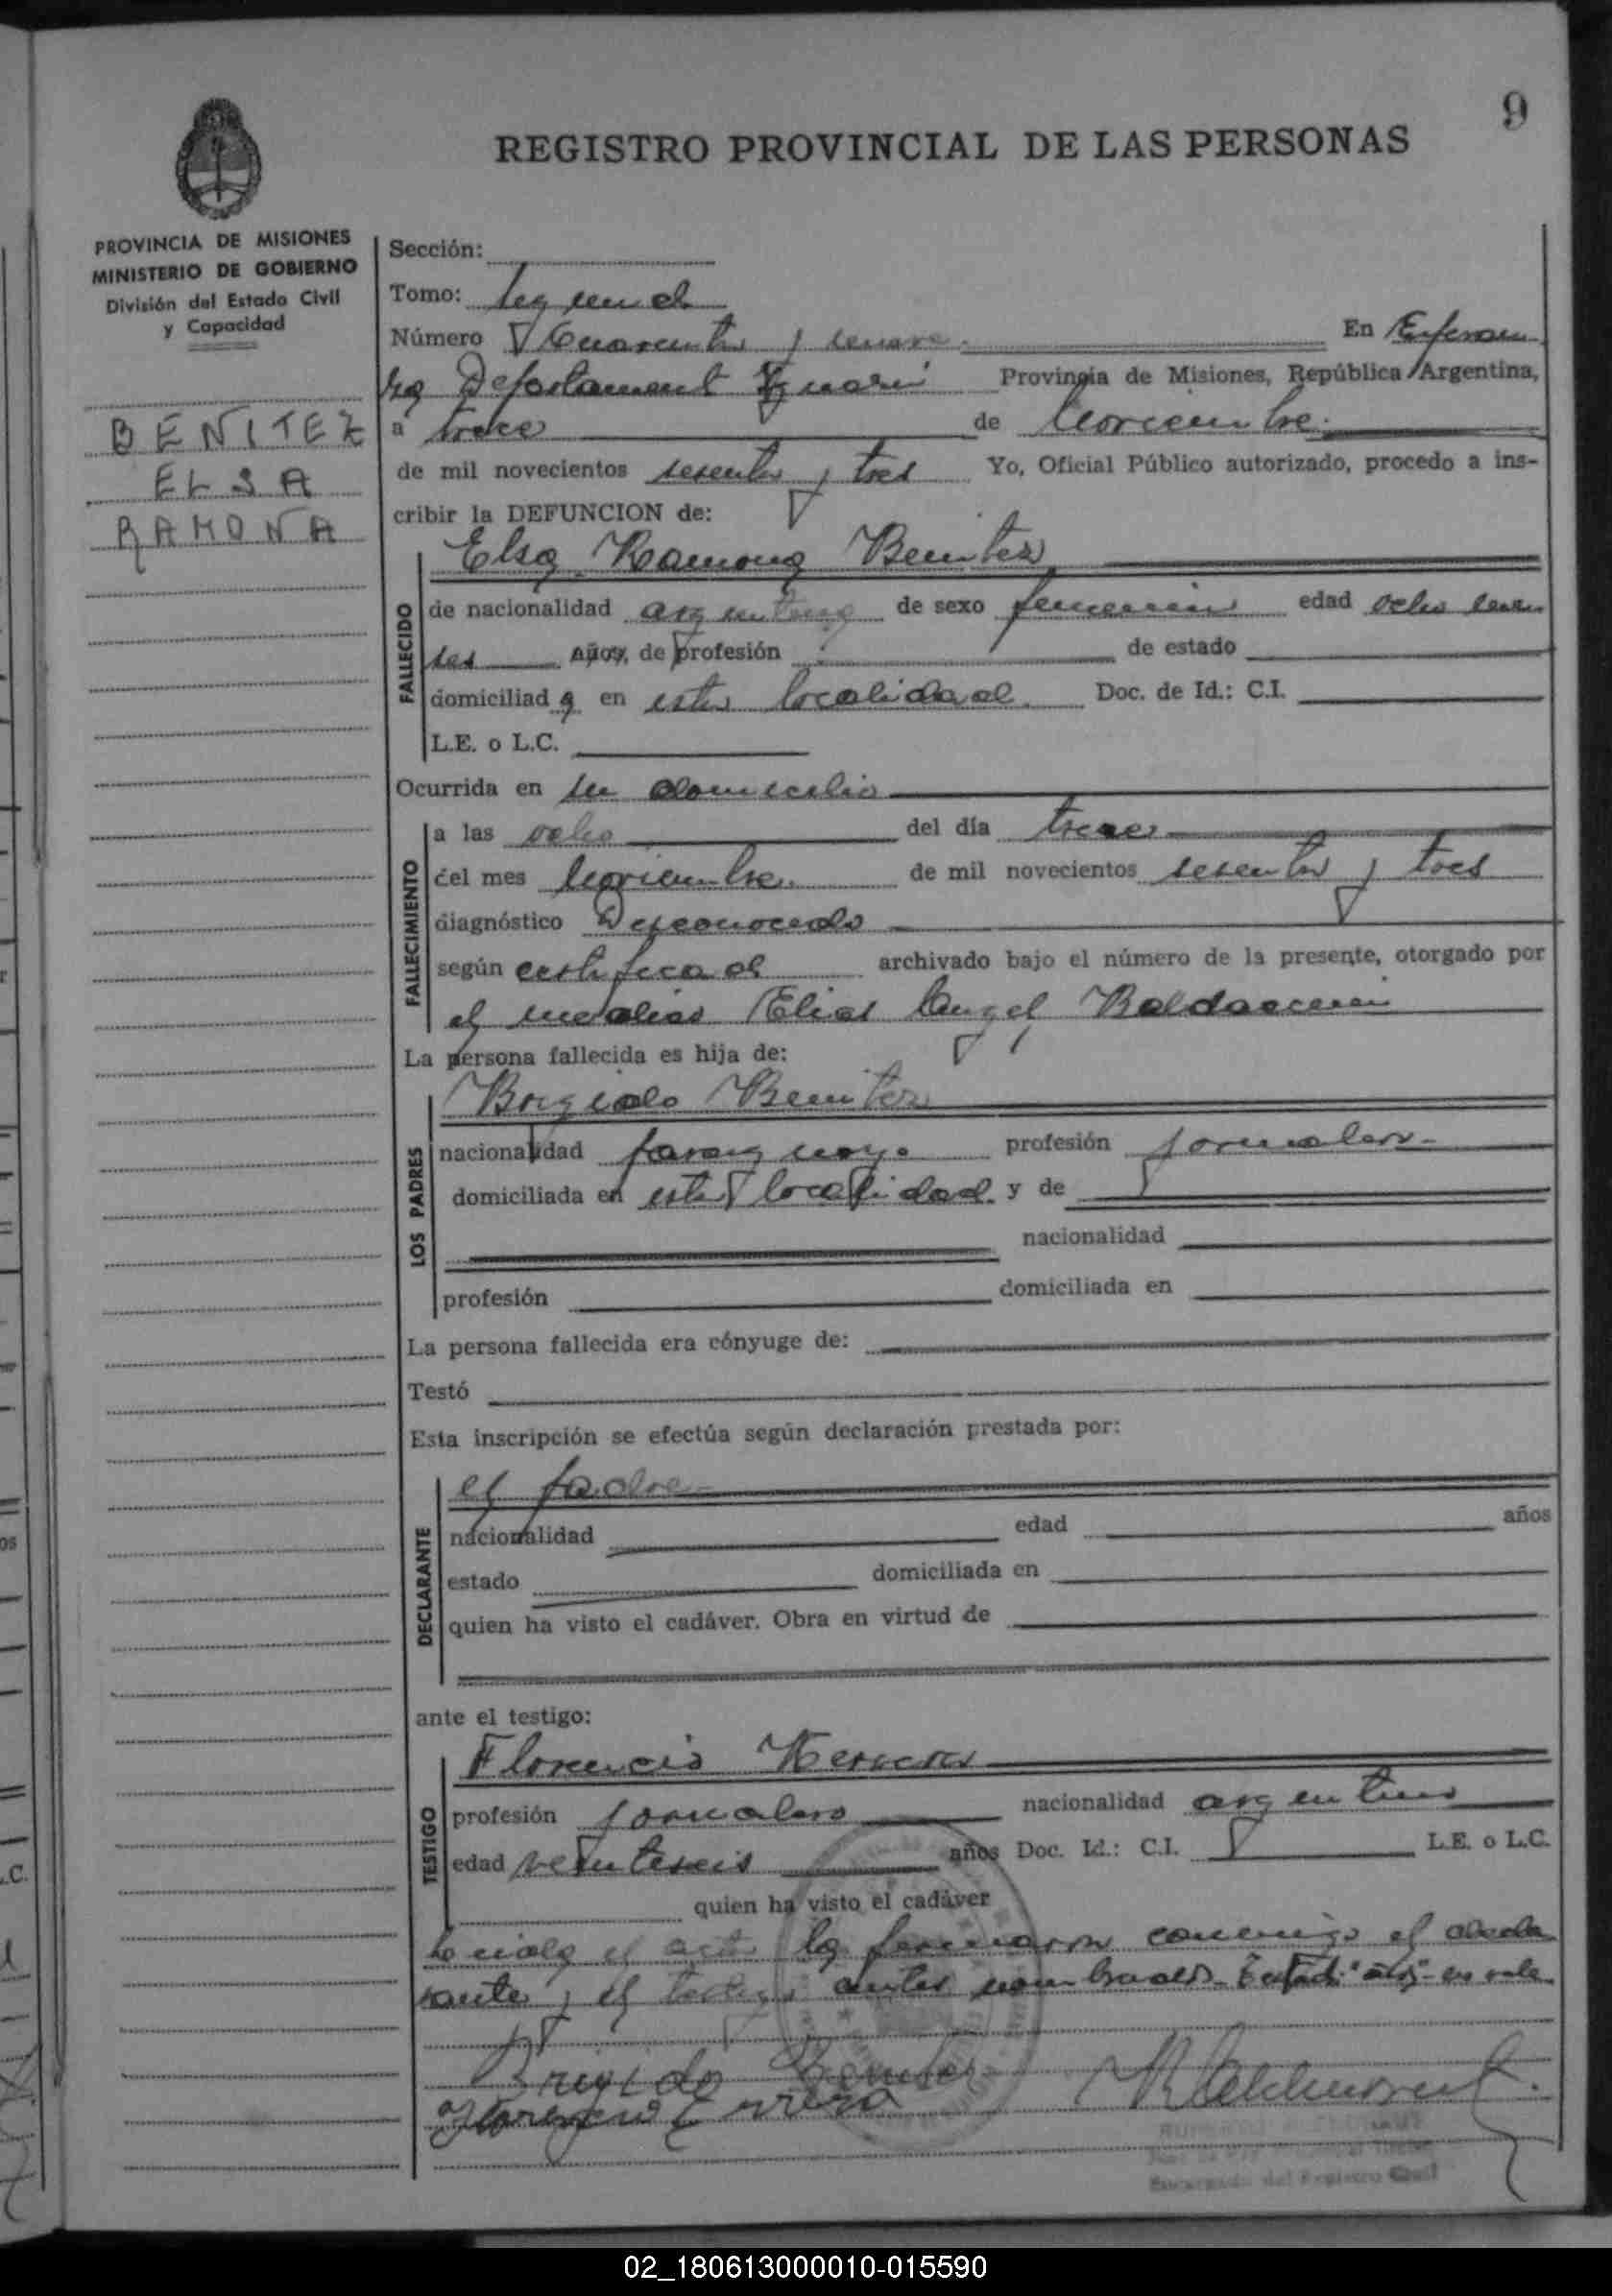 9
REGISTRO PROVINCIAL DE LAS PERSONAS
PROVINCIA DE MISIONES
MINISTERIO DE GOBIERNO
División del Estado Civil
y Capacidad
BENITEZ
ELSA
RAMONA
Sección:
Tomo: Segundo
Número Cuarenta y nueve. En Esperan
za Departamento Iguazú Provincia de Misiones, República Argentina,
a trece de Noviembre.
de mil novecientos sesenta y tres Yo, Oficial Público autorizado, procedo a ins-
cribir la DEFUNCION de:
Elsa Ramona Benitez
FALLECIDO
de nacionalidad argentina de sexo femenino edad ocho me
ses Años, de profesión de estado
domiciliad a en esta localidad. Doc. de Id.: C.I.
L.E. o L.C.
Ocurrida en su domicilio
FALLECIMIENTO
a las ocho del día trece
del mes Noviembre. de mil novecientos sesenta y tres
diagnóstico Desconocido
según certificado archivado bajo el número de la presente, otorgado por
el médico Elias Angel
La persona fallecida es hija de:
LOS PADRES
Brigido Benitez
nacionalidad paraguayo profesión jornalero-
domiciliada en esta localidad. y de
nacionalidad
profesión domiciliada en
La persona fallecida era cónyuge de:
Testó
Esta inscripción se efectúa según declaración prestada por:
DECLARANTE
el padre
nacionalidad edad años
estado domiciliada en
quien ha visto el cadáver. Obra en virtud de
ante el testigo:
TESTIGO
Florencio Herrera
profesión jornalero nacionalidad argentino
edad veintiseis años Doc. Id.: C.I. L.E. o L.C.
quien ha visto el cadáver
Leida el acta la firmaron conmigo el decla
rante y el testigo antes nombrados- Testado: "años"- no vale
Brigido Benitez
Encargado del Registro Civil
02_180613000010-015590